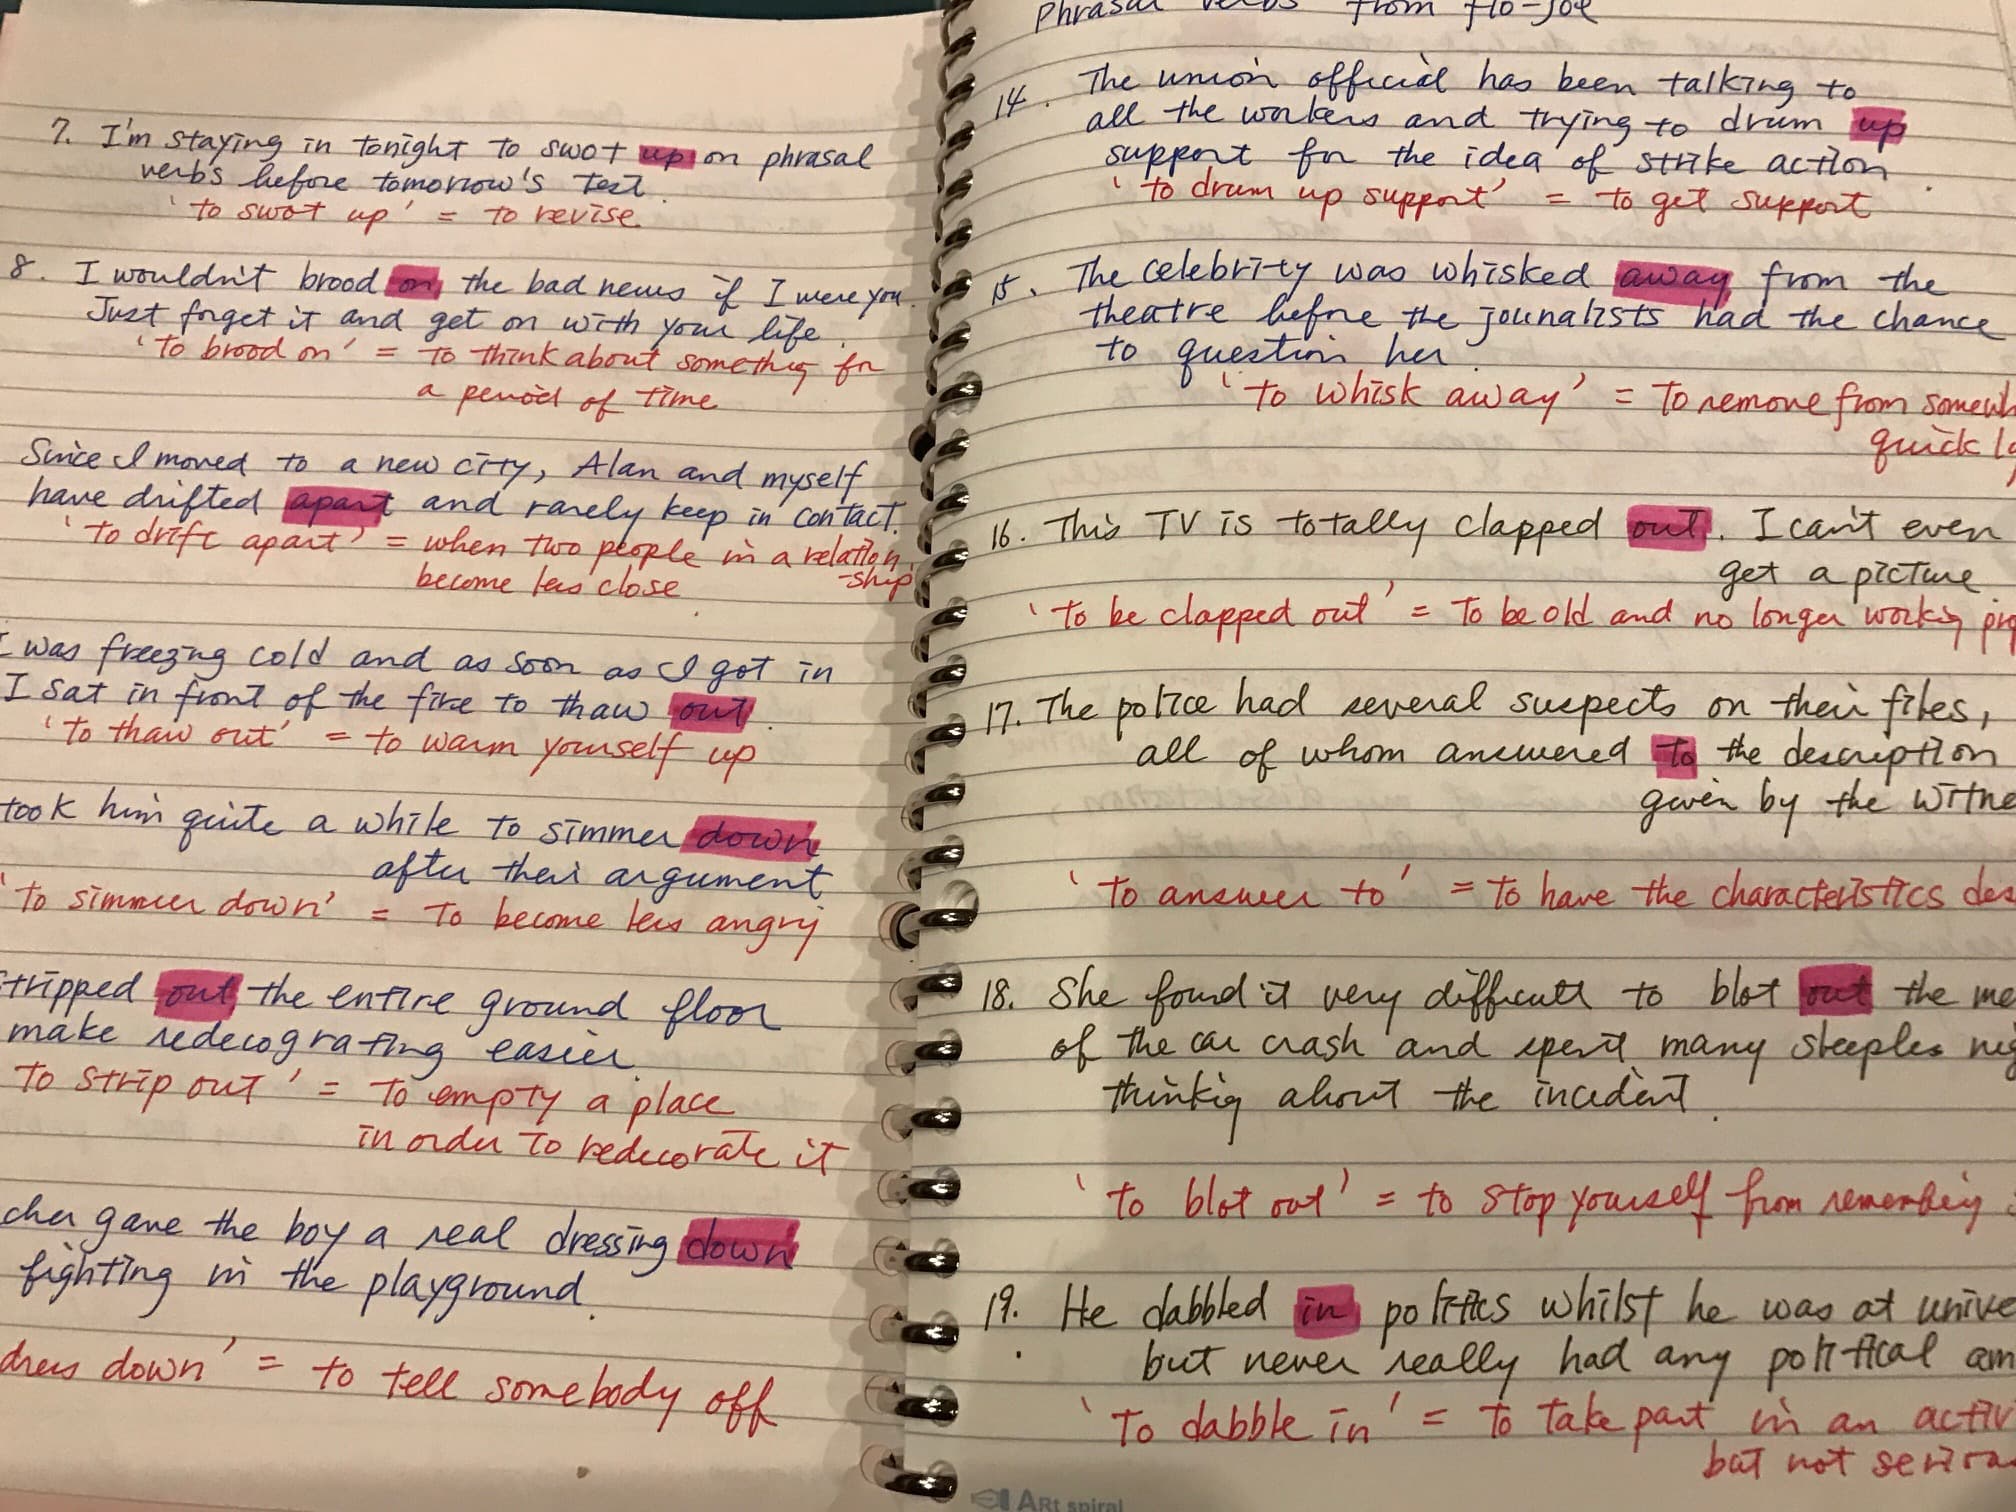 7. I'm staying in tonight to swot up on phrasal
verbs before tomorrow's test.
'to swot up' = to revise.
8. I wouldn't brood on the bad news if I were you.
Just forget it and get on with your life.
'to brood on' = to think about something for
a period of time
Since I moved to a new city, Alan and myself
have drifted apart and rarely keep in contact.
'to drift apart' = when two people in a relation
-ship
become less close
I was freezing cold and as soon as I got in
I sat in front of the fire to thaw out.
'to thaw out' = to warm yourself up
took him quite a while to simmer down
after their argument
'to simmer down' = to become less angry
stripped out the entire ground floor
make redecograting easier.
To strip out' = to empty a place
in order to redecorate it
cher gave the boy a real dressing down
fighting in the playground.
dress down' = to tell somebody off
Phrasal verbs from flo-joe
14. The union official has been talking to
all the workers and trying to drum up
support for the idea of strike action
'to drum up support' = to get support
15. The celebrity was whisked away from the
theatre before the jounalists had the chance
to question her.
'to whisk away' = to remove from somewh
quickly
16. This TV is totally clapped out. I can't even
get a picture.
'to be clapped out' = to be old and no longer working pro
17. The police had several suspects on their files,
all of whom answered to the description
given by the witne
'to answer to' = to have the characteristics des
18. She found it very difficult to blot out the me
of the car crash and spent many sleeples nig
thinking about the incident.
'to blot out' = to stop yourself from remembering
19. He dabbled in politics whilst he was at unive
but never really had any political am
'to dabble in' = to take part in an activ
but not seriou
ARt spiral